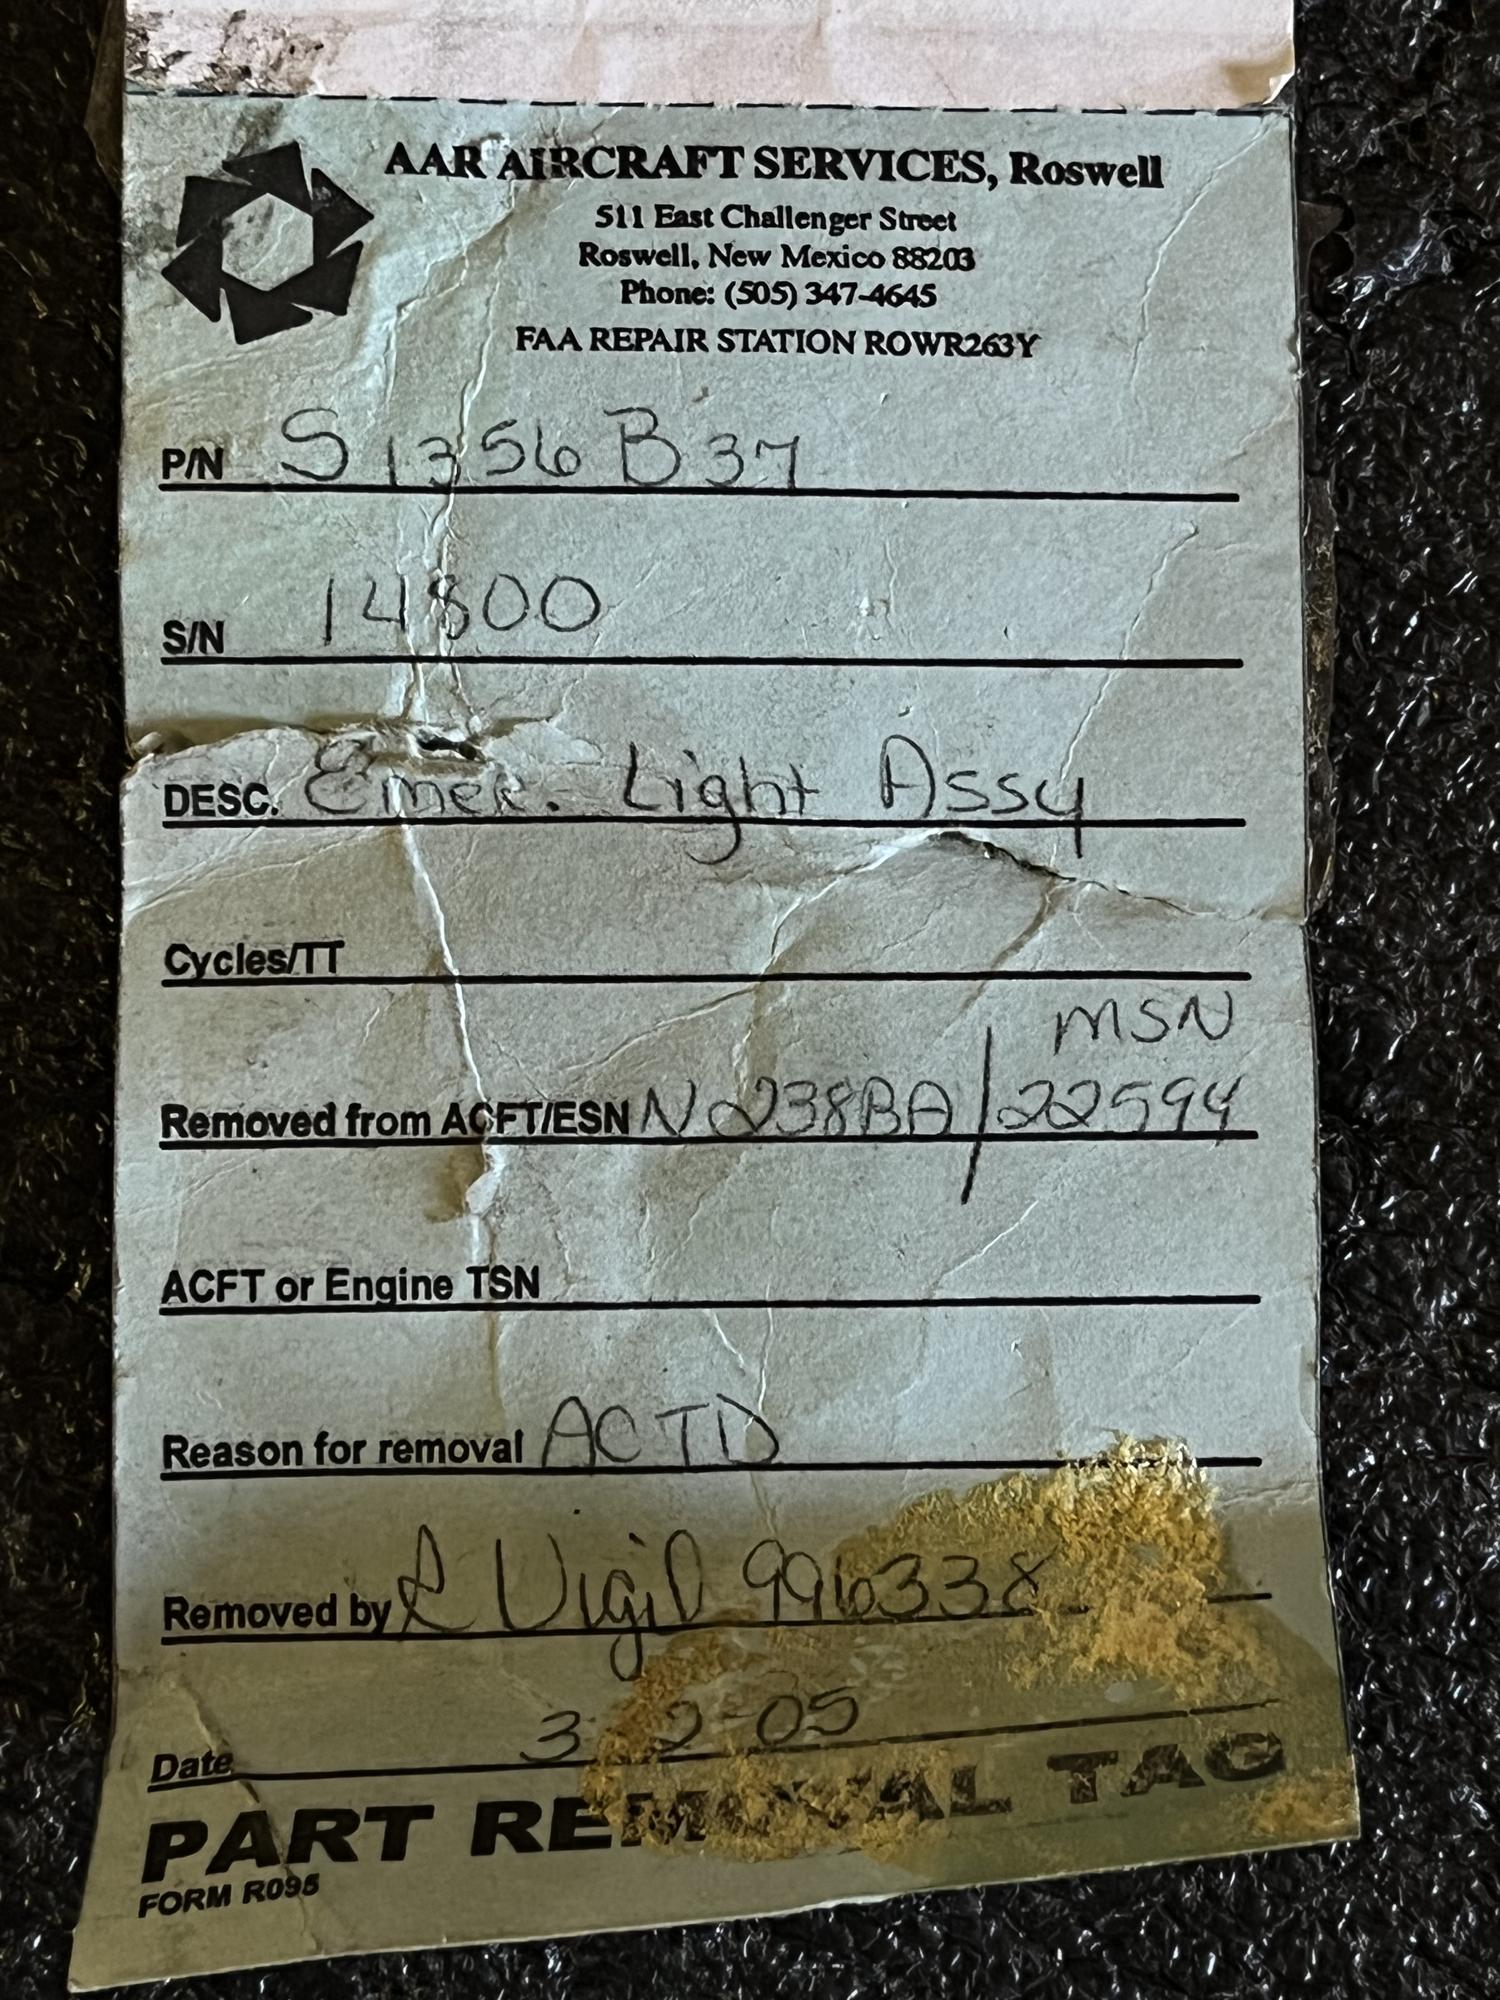 AAR AIRCRAFT SERVICES, Roswell
511 East Challenger Street
Roswell, New Mexico 88203
Phone: (505) 347-4645
FAA REPAIR STATION ROWR263Y
P/N S1356B37
S/N 14800
DESC. Emer. Light Assy
Cycles/TT
MSN
Removed from ACFT/ESN N238BA/22594
ACFT or Engine TSN
Reason for removal ACTD
Removed by R Vigil 996338
Date 3-2-05
PART REMOVAL TAG
FORM R095